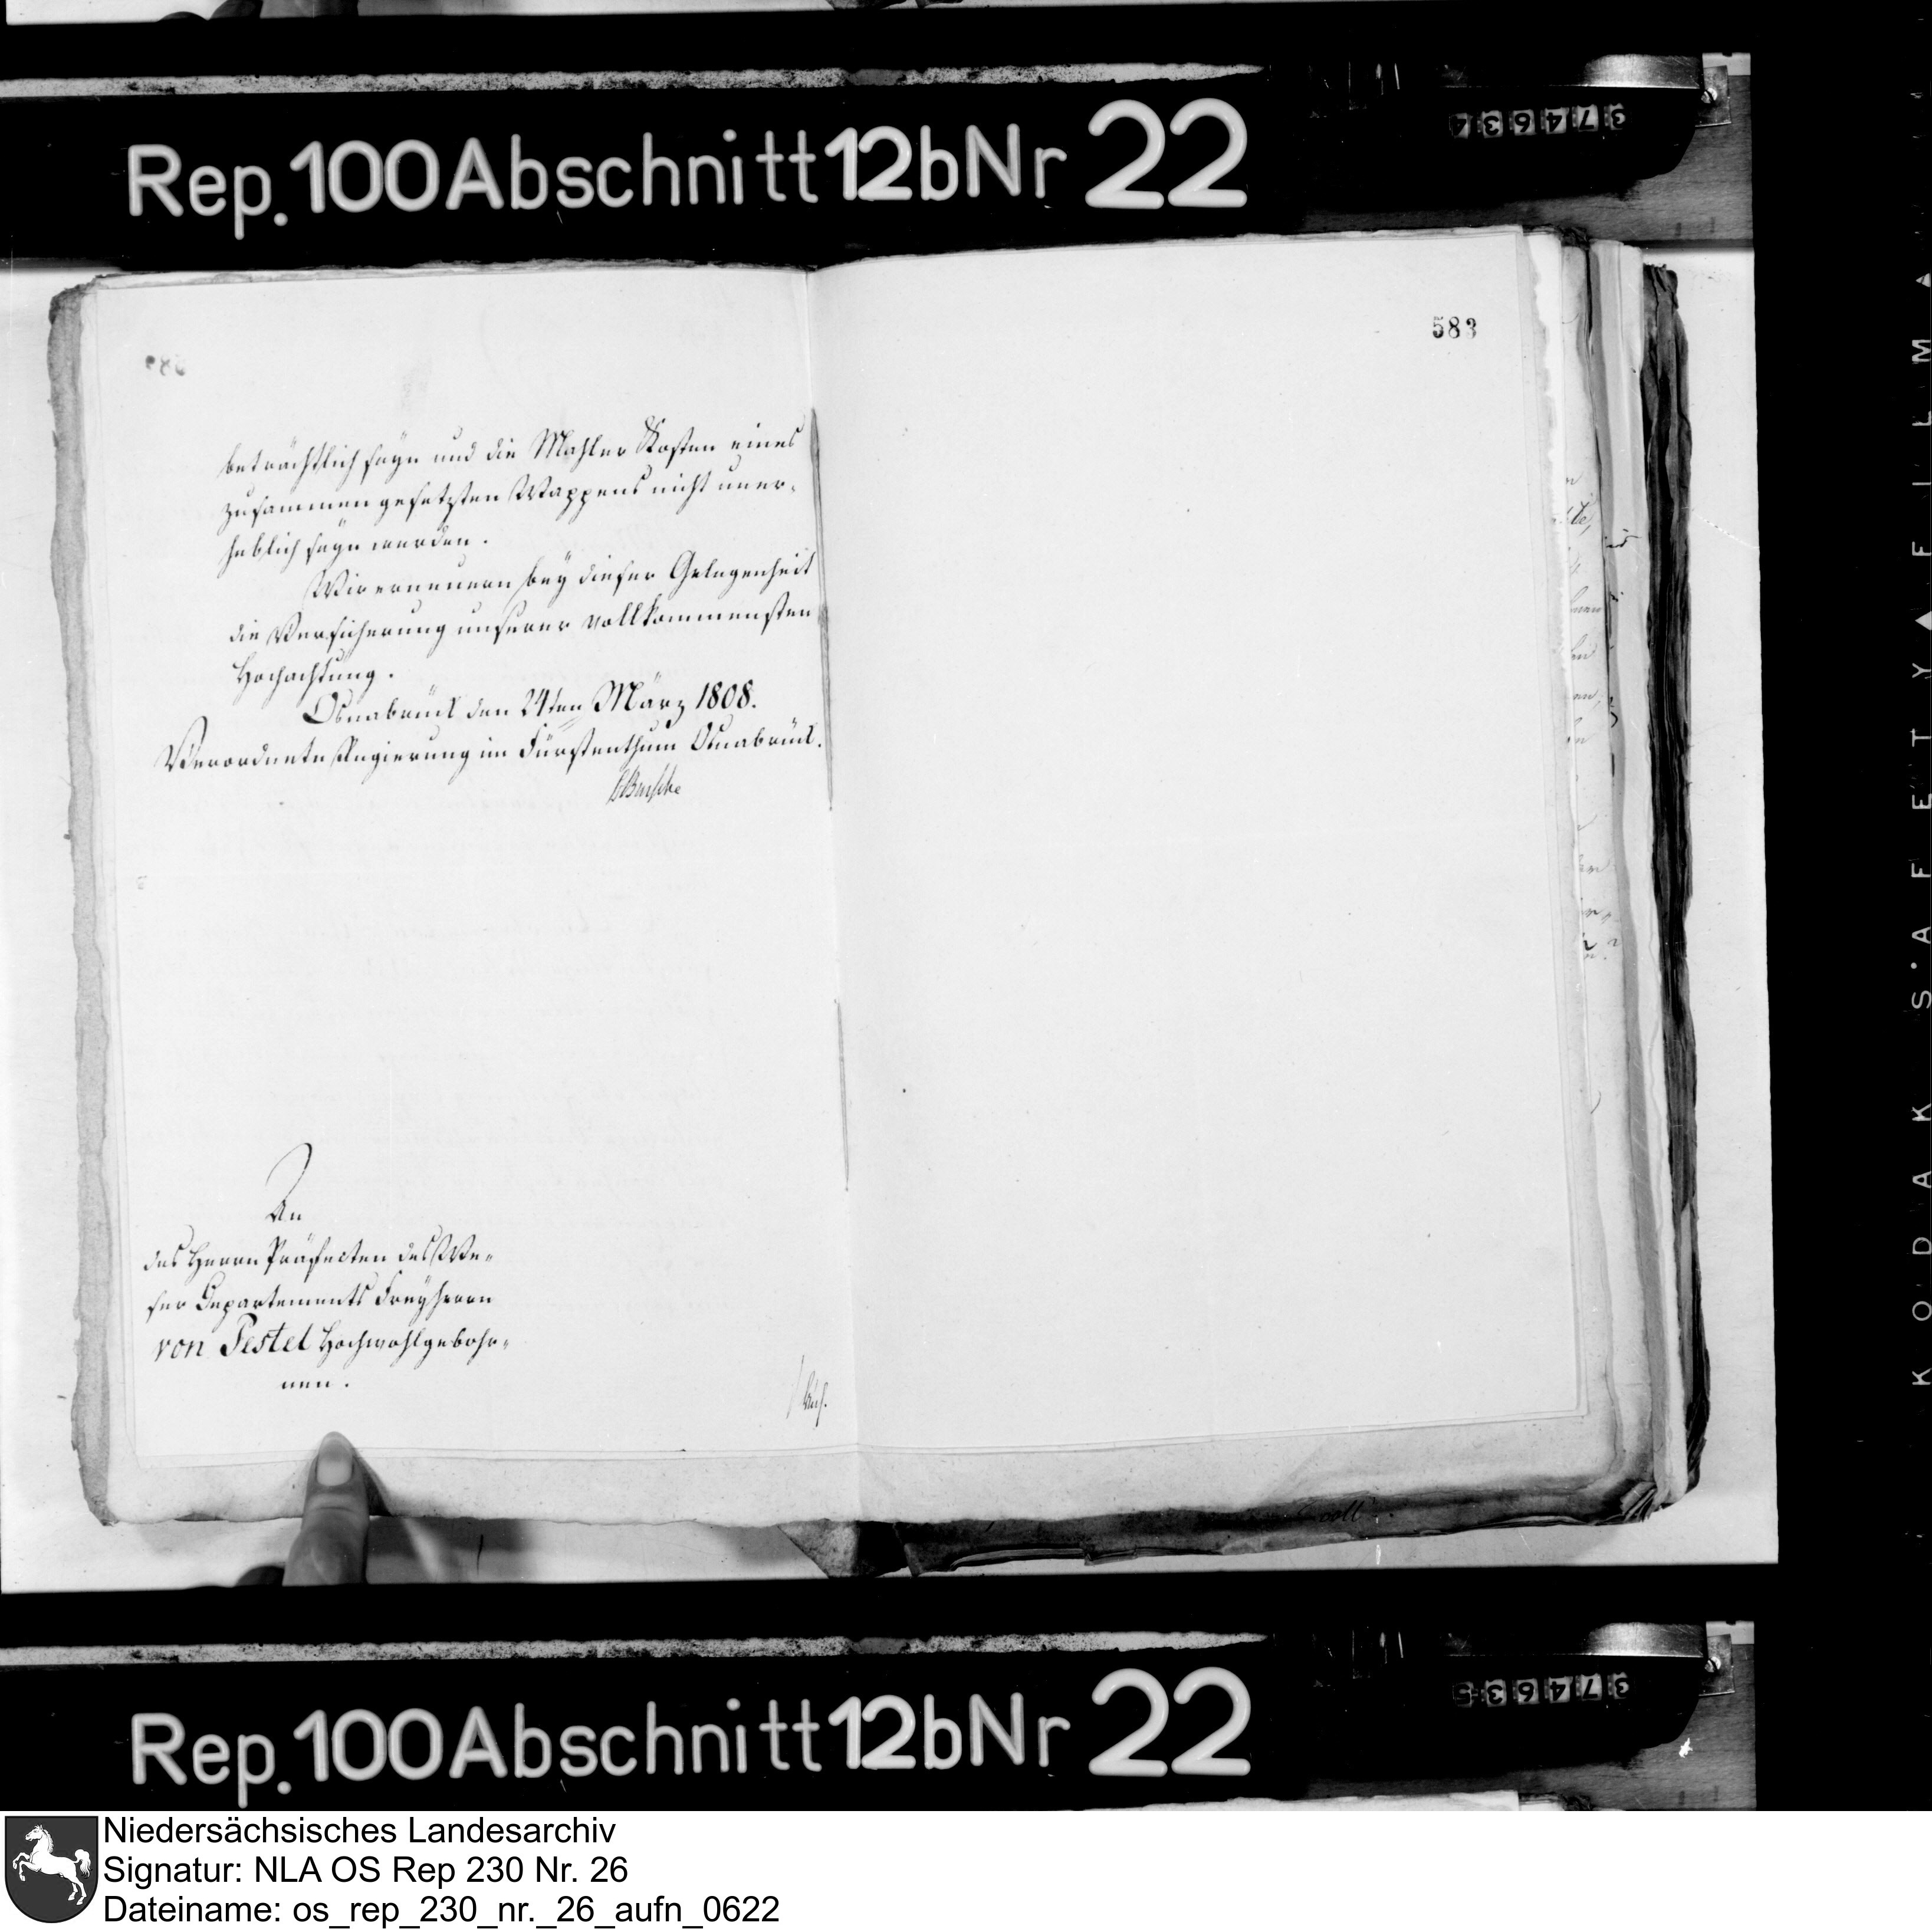 Rep. 100 Abschnitt 12b Nr 22
374634
583
beträchtlich seyn und die Mahler Kosten eines
zusammengesetzten Wappens nicht uner-
heblich seyn werden.
Wir erneuern bey dieser Gelegenheit
die Versicherung unserer vollkommensten
Hochachtung.
Osnabrück den 24ten März 1808.
Verordnete Regierung im Fürstenthum Osnabrück.
Bussche
An
des Herrn Präfecten des We-
ser Departements Freyherrn
von Pestel Hochwohlgebohr-
nen.
Rep. 100 Abschnitt 12b Nr 22
374635
KODAK SAFETY FILM
Niedersächsisches Landesarchiv
Signatur: NLA OS Rep 230 Nr. 26
Dateiname: os_rep_230_nr._26_aufn_0622